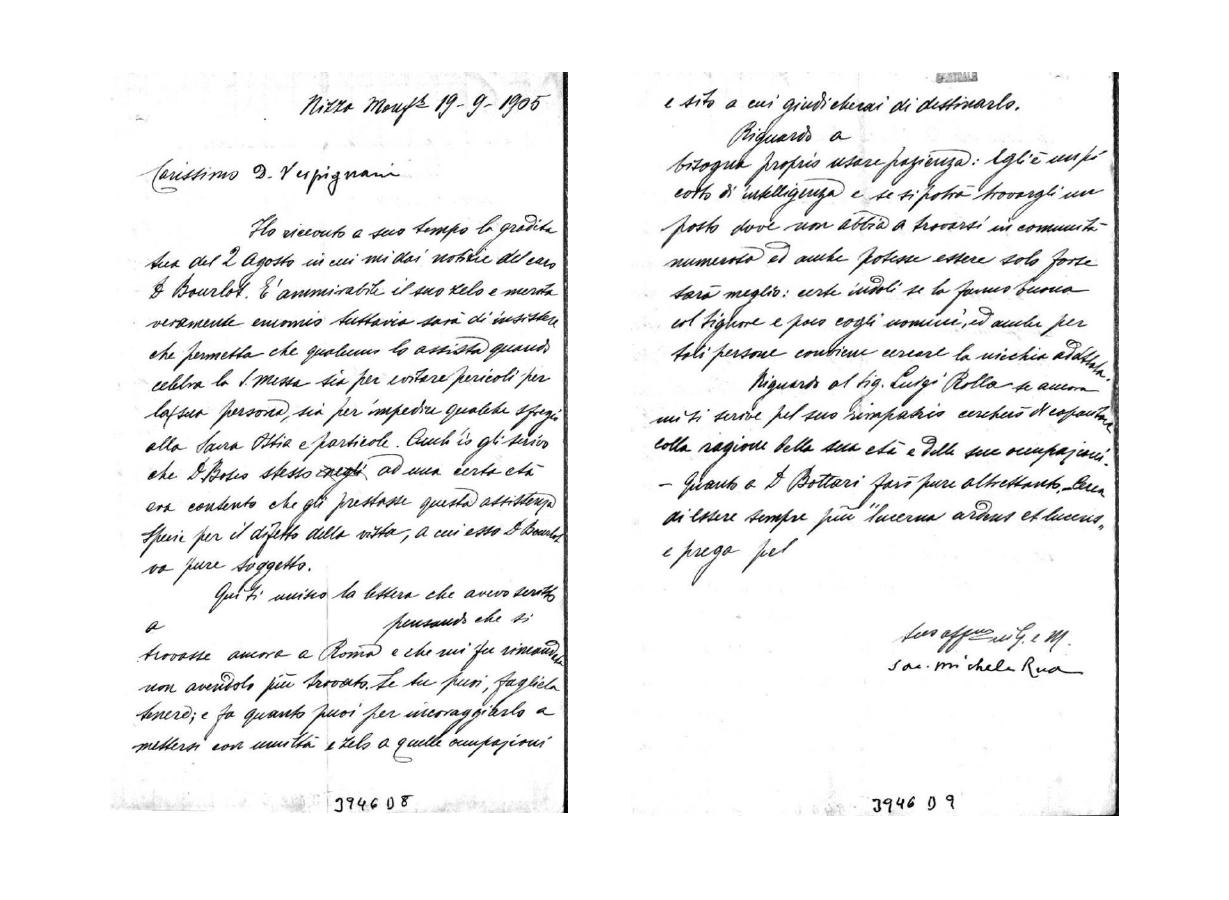 Nizza Monf.to 19-9-1905
Carissimo D. Vespignani
Ho ricevuto a suo tempo la gradita
tua del 2 Agosto in cui mi dai notizie del caro
D. Bourlot. È ammirabile il suo zelo e merita
veramente encomio tuttavia sarà di insistere
che permetta che qualcuno lo assista quando
celebra la S. Messa sia per evitare pericoli per
la sua persona, sia per impedire qualche sfregio
alla Sacra Ostia e particole. Anch'io gli scrivo
che D. Bosco stesso negli ad una certa età
era contento che gli prestasse questa assistenza
specie per il difetto della vista, a cui esso D. Bourlot
va pure soggetto.
Qui ti unisco la lettera che avevo scritto
a pensando che si
trovasse ancora a Roma e che mi fu rimandata
non avendolo più trovato. Se tu puoi, fagliela
tenere; e fa quanto puoi per incoraggiarlo a
mettersi con umiltà e zelo a quelle occupazioni
3946 D 8
CENTRALE
e sito a cui giudicherai di destinarlo.
Riguardo a
bisogna proprio usare pazienza: Egli è un pò
corto di intelligenza e se si potrà trovargli un
posto dove non abbia a trovarsi in comunità
numerosa ed anche potesse essere solo forse
sarà meglio: certe indoli se la fanno buona
col Signore e poco cogli uomini, ed anche per
tali persone conviene cercare la nicchia adattata.
Riguardo al Sig. Luigi Rolla se ancora
mi si scrive pel suo rimpatrio cercherò di
colla ragione della sua età e delle sue occupazioni.
- Quanto a D. Bottari farò pure altrettanto. - Cerca
di essere sempre più "lucerna ardens et lucens"
e prega pel
tuo aff.mo in G. e M.
Sac. Michele Rua
3946 D 9